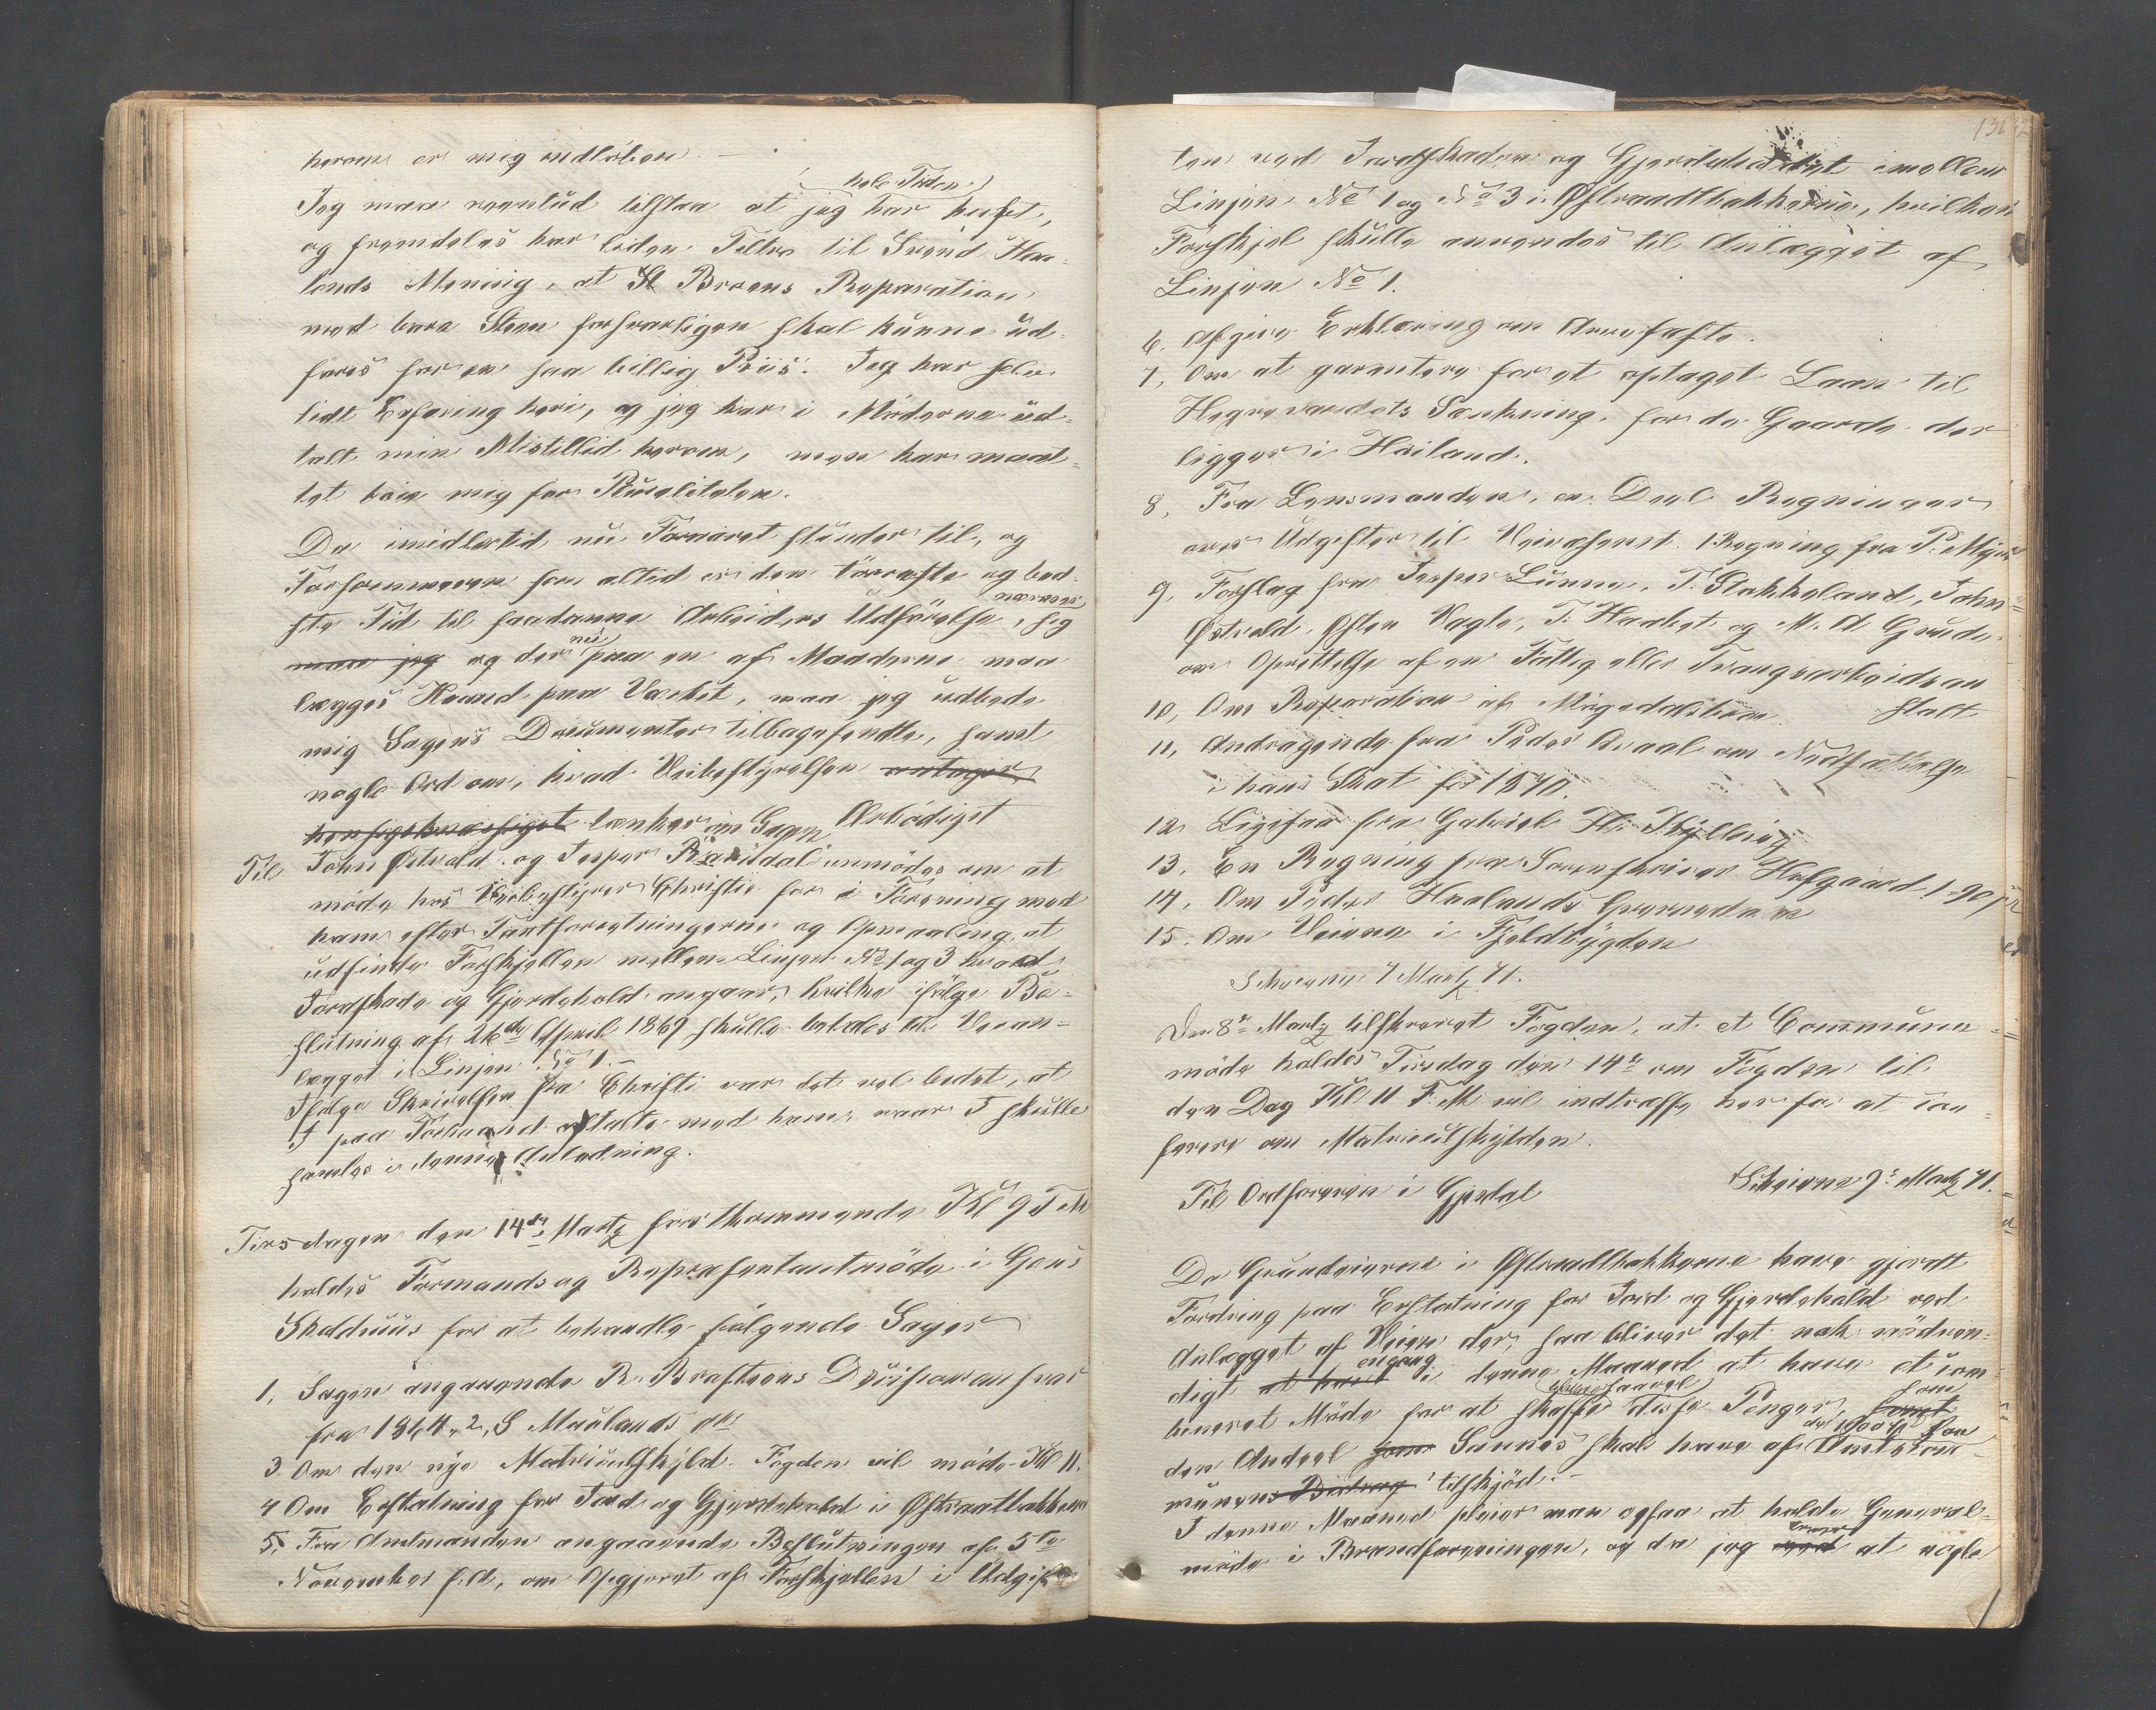 herom er mig indløben. —
(hele Tiden)
Jeg maa reentud tilstaa at jeg har havt,
og fremdeles har liden Tiltro til Svend Hau-
lands Mening, at Broens Reparation
med bare Steen forsvarligen skal kunne ud-
føres for en saa billig Priis. Jeg har selv
lidt Erfaring heri, og jeg har i Møderne ud-
talt min Mistillid herom, men har maat-
tet bøie mig for Pluraliteten.
Da imidlertid nu Foraaret stunder til, og
Forsommeren som altid er den tørreste og bed-
nærmer
ste Tid til saadanne Arbeiders Udførelse, sig
maa jeg og der nu paa en af Maaderne maa
lægges Haand paa Værket, maa jeg udbede
mig Sagens Documenter tilbagesendte, samt
nogle Ord om, hvad Veibestyrelsen antager
hensigtsmæssigst tænker om Sagen Ærbødigst
Til John Østvold og Jesper Ravndal anmodes om at
møde hos Veibestyrer Christie for i Forening med
ham efter Taxtforretningerne og Opmaaling at
udfinde Forskjellen mellem Linjen No 1 og 3 hvad
Jordskade og Gjerdehold angaar, hvilke ifølge Be-
slutning af 26de April 1869 skulle betales til Veian-
lægget i Linjen No 1. —
Ifølge Skrivelsen fra Christi var det vel bedst, at
I paa Forhaand aftalte med ham, naar I skulle
samles i denne Anledning.
Tirsdagen den 14de Martz førstkommende Kl 9 F M
holdes Formands og Repræsentantmøde i Gans
Skolehuus for at behandle følgende Sager
1, Sagen angaaende R. Kraftsons Decisioner
fra 1864. 2, S Maulands
3. Om den nye Matriculskyld. Fogden vil møde Kl 11.
4 Om Erstatning for Jord og Gjerdehold i Østraatbakken
5, Fra Amtmanden angaaende Beslutningen af 5te
November f. A, om Opgjøret af Forskjellen i Udgif
ten ved Jordskaden og Gjerdeholdet imellem
Linjen No 1 og No 3 i Østraadtbakkerne, hvilken
Forskjel skulle anvendes til Anlægget af
Linjen No 1.
6. Afgive Erklæring om Arvefæste.
7, Om at garantere for et optaget Laan til
Hegrevandets Sænkning, for de Gaarde der
ligger i Høiland.
8, Fra Lensmanden, en Deel Regninger
over Udgifter til Veivæsenet. 1 Regning fra P.
9, Forslag fra Jesper Lunne, T. Stakkeland, John
Østvold, Østen Vagle, T. Haabet og M. A Grude
om Oprettelse af en Fattig eller Tvangsarbeidsan
stalt
10, Om Reparation af
11, Andragende fra Peder Aaal om Nedsættelse
i hans Skat for 1870.
12, Ligesaa fra Gabriel H. Kylling
13. En Regning fra Sorenskriver Hofgaard 1-90
14, Om Peder Haalands
15. Om Veiene i Fjeldbygden
7 Martz 71.
Den 8de Martz tilskrevet Fogden, at et Commune
møde holdes Tirsdag den 14de om Fogden til
den Dag Kl 11 F. M vil indtræffe her for at con-
ferere om Matriculskylden.
9de Martz 71.
Til Ordføreren i Gjesdal
Da Grundeierne i Østraadtbakkerne have gjordt
Fordring paa Erstatning for Jord og Gjerdehold ved
Anlægget af Veien der, saa bliver det nok nødven-
engang
digt at have i denne Maaned at have et com-
bineret Møde for at skaffe disse Penge,
den Andeel som Sannes skal have af
munens Bidrag tilskjød. —
I denne Maaned pleier man ogsaa at holde General-
møde i Brandforeningen, og da jeg at nogle